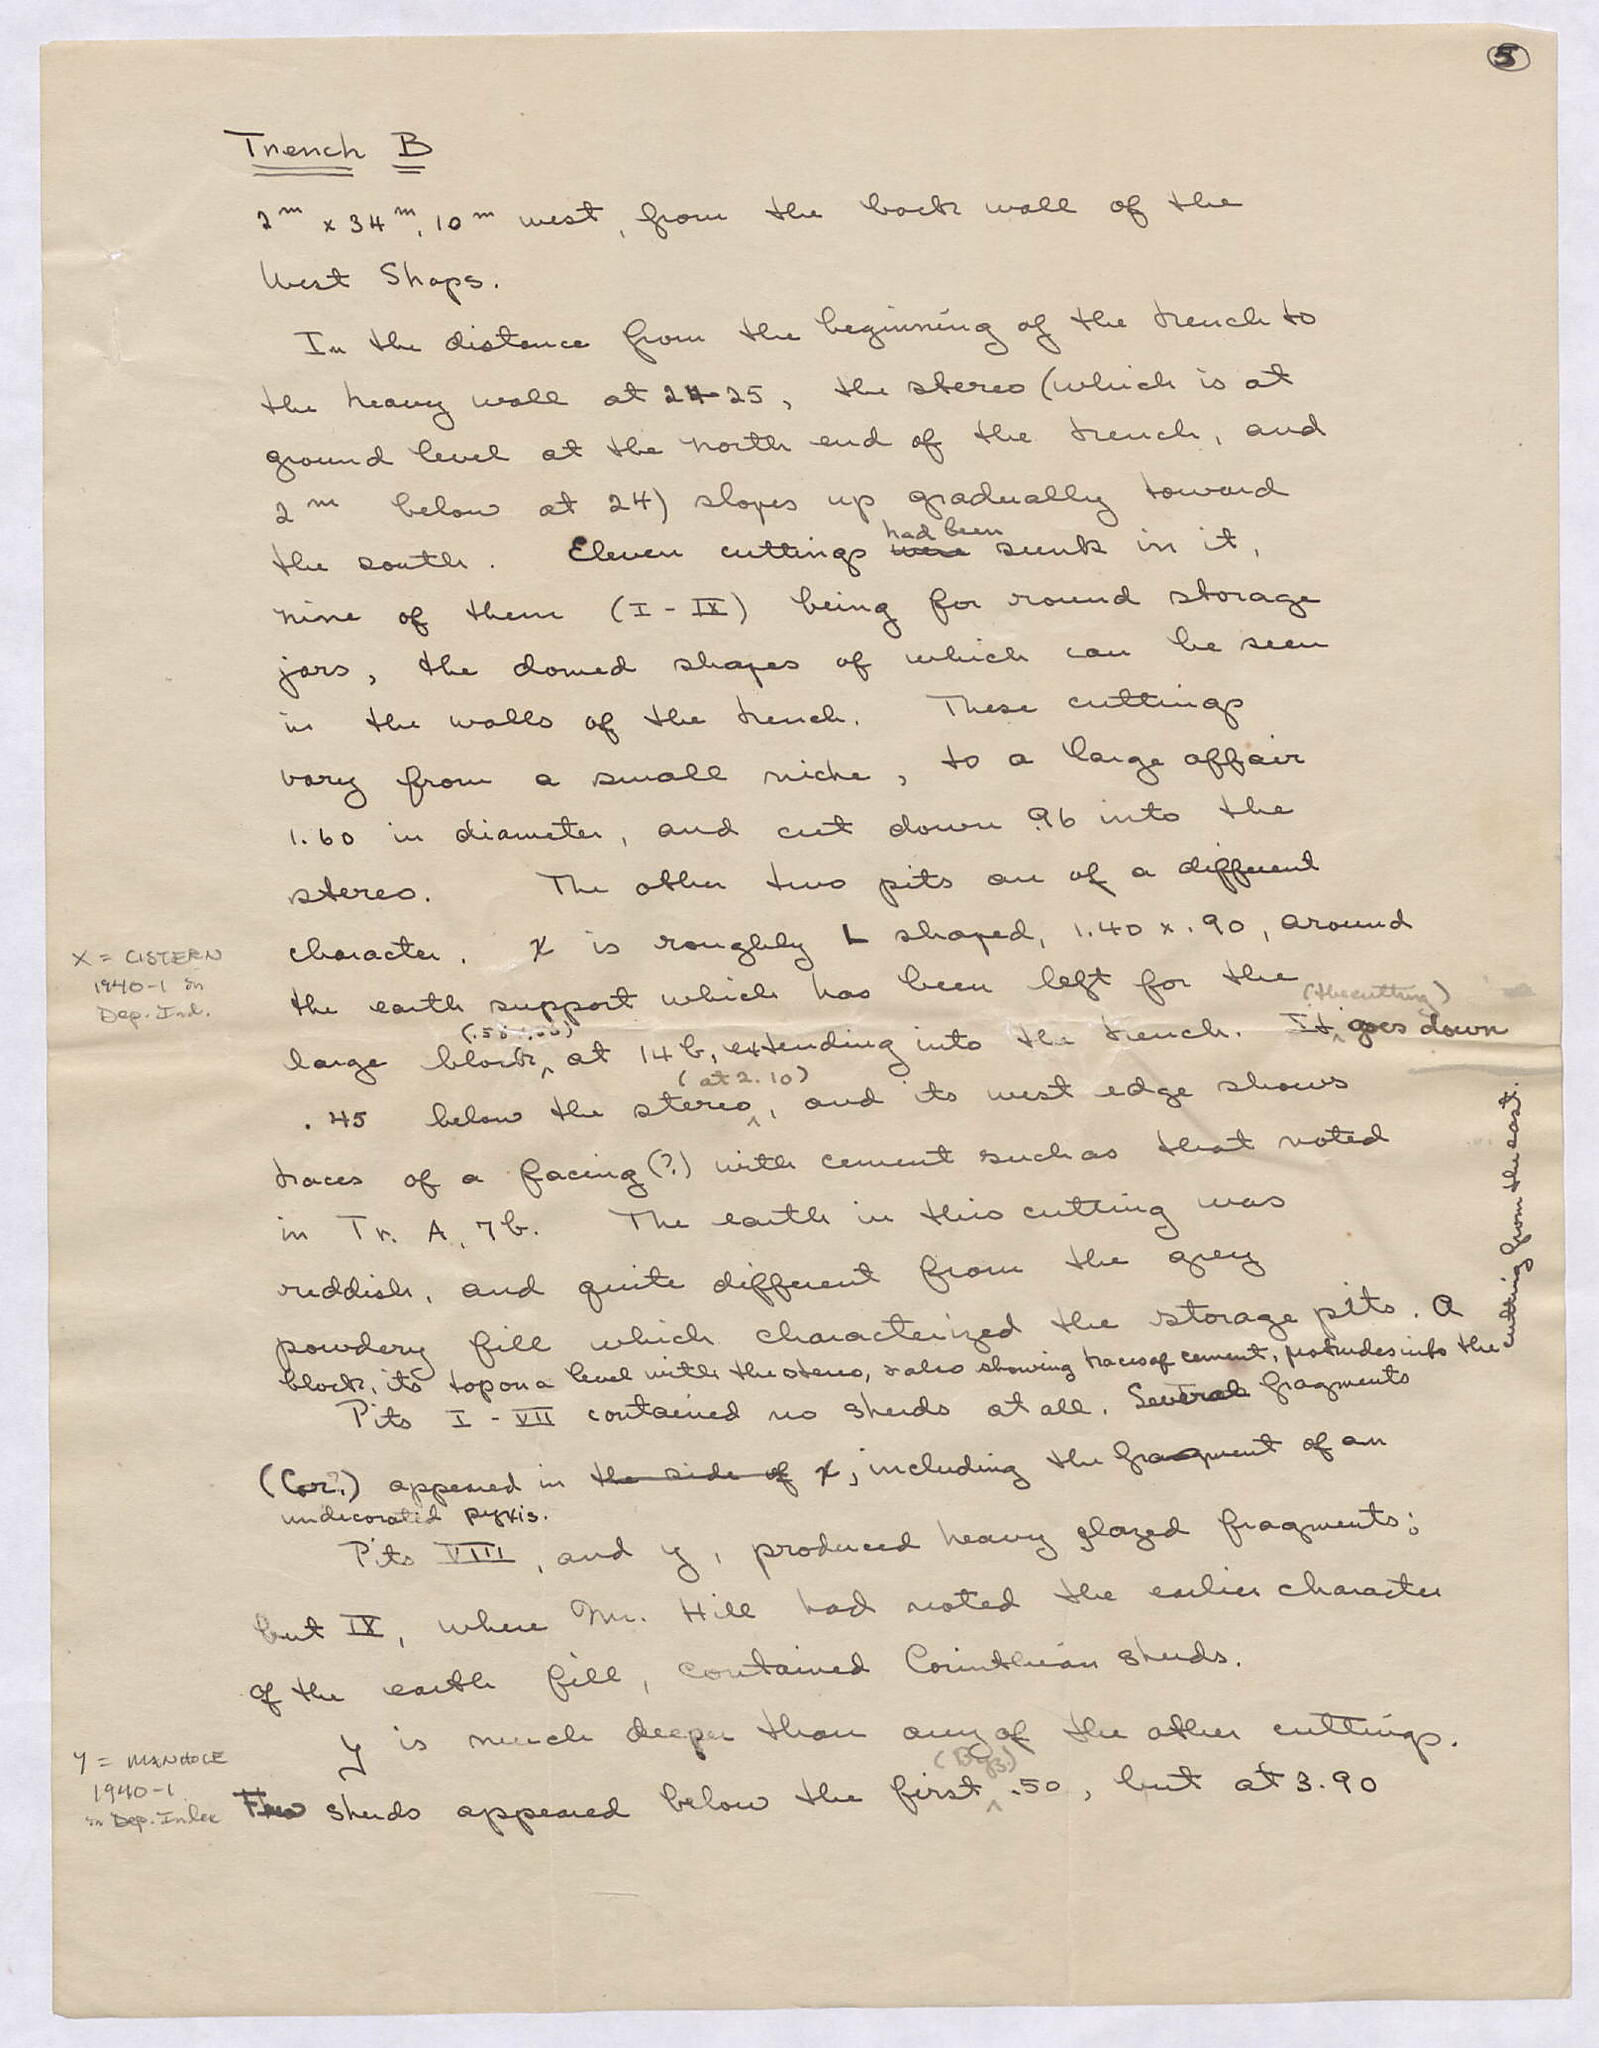 5
Trench B
2m x 34m, 10m west, from the back wall of the
West Shops.
In the distance from the beginning of the trench to
the heavy wall at 24-25, the stereo (which is at
ground level at the north end of the trench, and
2m below at 24) slopes up gradually toward
had been
the south. Eleven cuttings were sunk in it,
nine of them (I - IX) being for round storage
jars, the domed shapes of which can be seen
in the walls of the trench. These cuttings
vary from a small niche, to a large affair
1.60 in diameter, and cut down .96 into the
stereo. The other two pits are of a different
character. X is roughly L shaped, 1.40 x .90, around
X = CISTERN
1940-1 in
Dep. Ind.
the earth support which has been left for the
(the cutting)
large block at 14 b, extending into the trench. It goes down
(at 2.10)
.45 below the stereo, and its west edge shows
traces of a facing (?) with cement such as that noted
in Tr. A, 7b. The earth in this cutting was
reddish, and quite different from the grey
powdery fill which characterized the storage pits. A
block, its top on a level with the stereo, & also showing traces of cement, protrudes into the
cutting from the east.
Pits I - VII contained no sherds at all. Several fragments
(Cor.?) appeared in the side of X, including the fragment of an
undecorated pyxis.
Pits VIII, and Y, produced heavy glazed fragments;
but IX, where Mr. Hill had noted the earlier character
of the earth fill, contained Corinthian sherds.
Y is much deeper than any of the other cuttings.
Y = MANHOLE
1940-1
in Dep. Index
Few sherds appeared below the first .50, but at 3.90